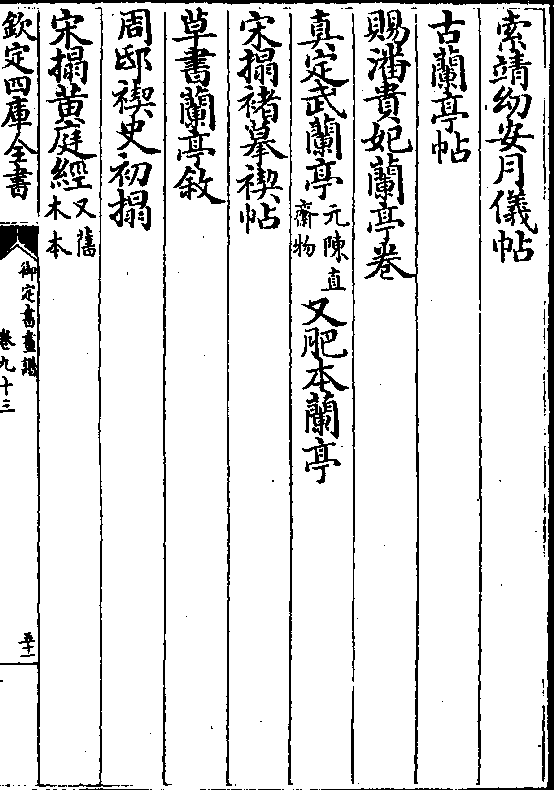 索靖幼安月儀帖
古蘭亭帖
賜潘貴妃蘭亭卷
真定武蘭亭元陳直齋物又肥本蘭亭
宋搨褚摹禊帖
草書蘭亭敘
周邸禊史初搨
宋搨黄庭經又舊木本
欽定四庫全書
御定書畫譜
卷九十三